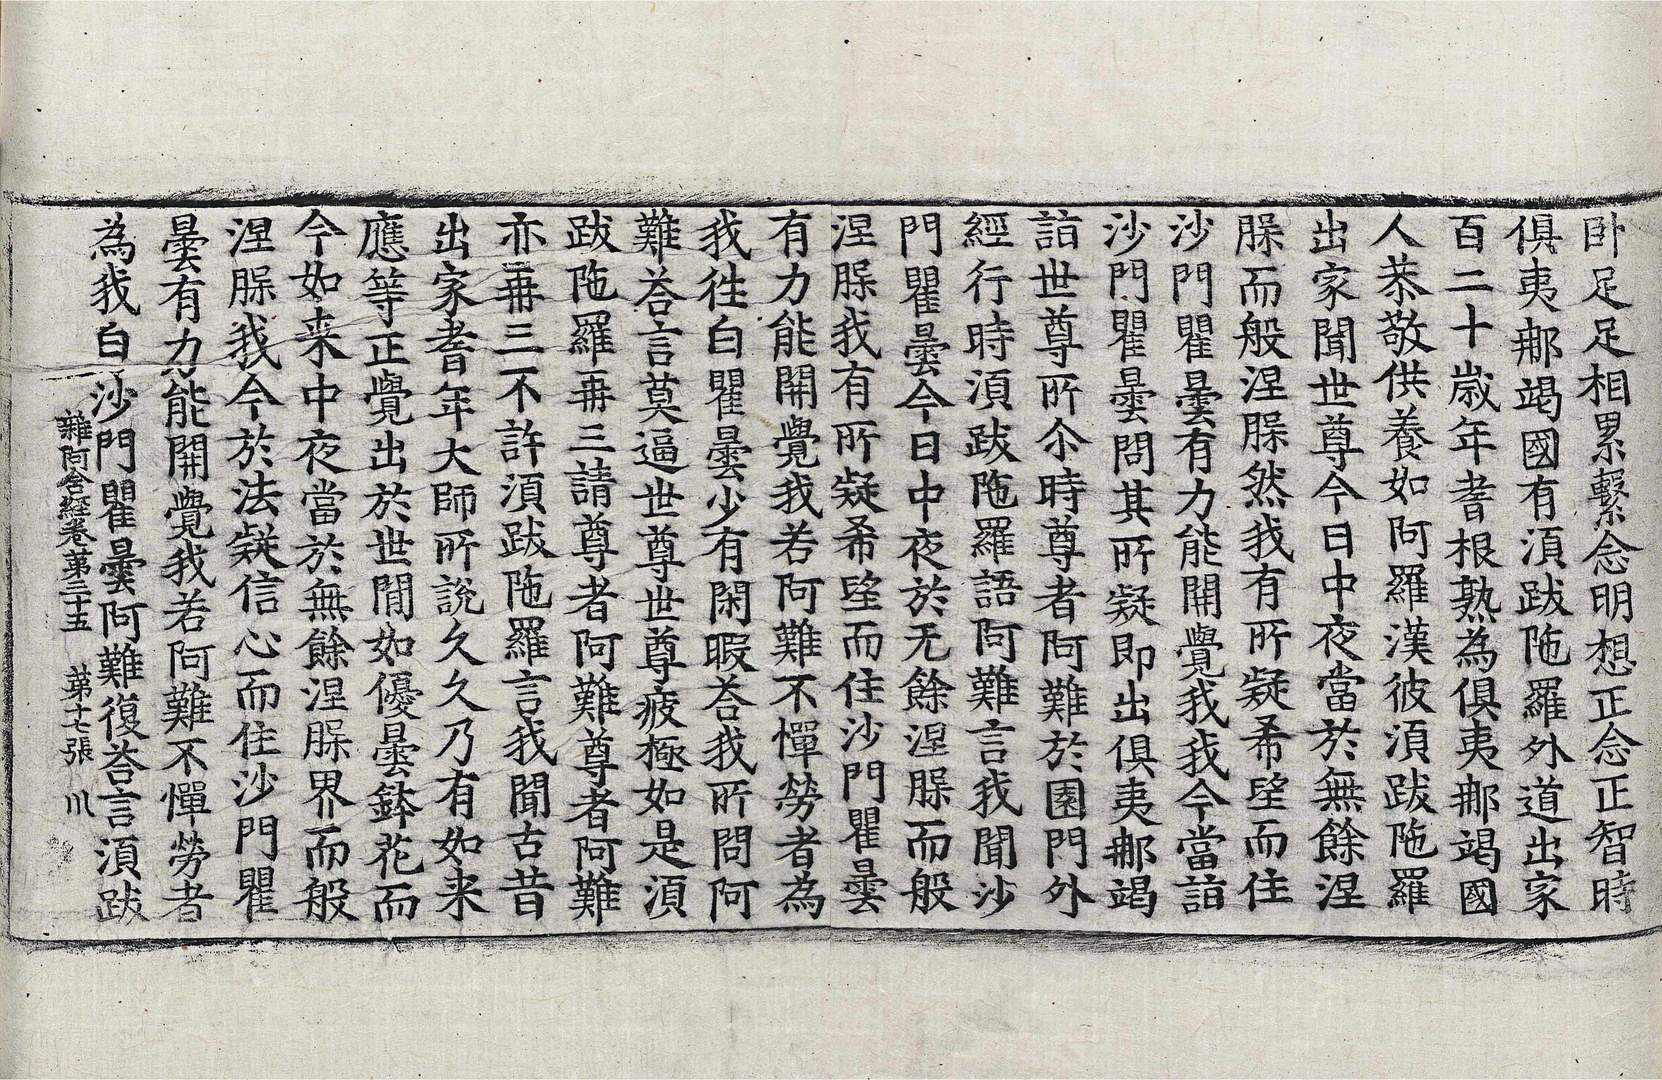 卧足足相累繫念明想正念正智時
俱夷那竭國有湏跋陁羅外道出家
百二十歲年耆根熟為俱夷那竭國
人恭敬供養如阿羅漢彼湏跋陁羅
出家聞世尊今日中夜當於無餘涅
脲而般涅脲然我有所疑希望而住
沙門瞿曇有力能開覺我我今當詣
沙門瞿曇問其所疑即出俱夷那竭
詣世尊所尒時尊者阿難於園門外
經行時湏跋陁羅語阿難言我聞沙
門瞿曇今日中夜於无餘涅脲而般
涅脲我有所疑希望而住沙門瞿曇
有力能開覺我若阿難不憚勞者為
我往白瞿曇少有閑暇荅我所問阿
難荅言莫逼世尊世尊疲極如是湏
跋陁羅再三請尊者阿難尊者阿難
亦再三不許湏跋陁羅言我聞古昔
出家耆年大師所說久久乃有如来
應等正覺出於世閒如優曇鉢花而
今如来中夜當於無餘涅脲界而般
涅脲我今於法疑信心而住沙門瞿
曇有力能開覺我若阿難不憚勞者
為我白沙門瞿曇阿難復荅言湏跋
雜阿含經卷第三十五 第十七張 川